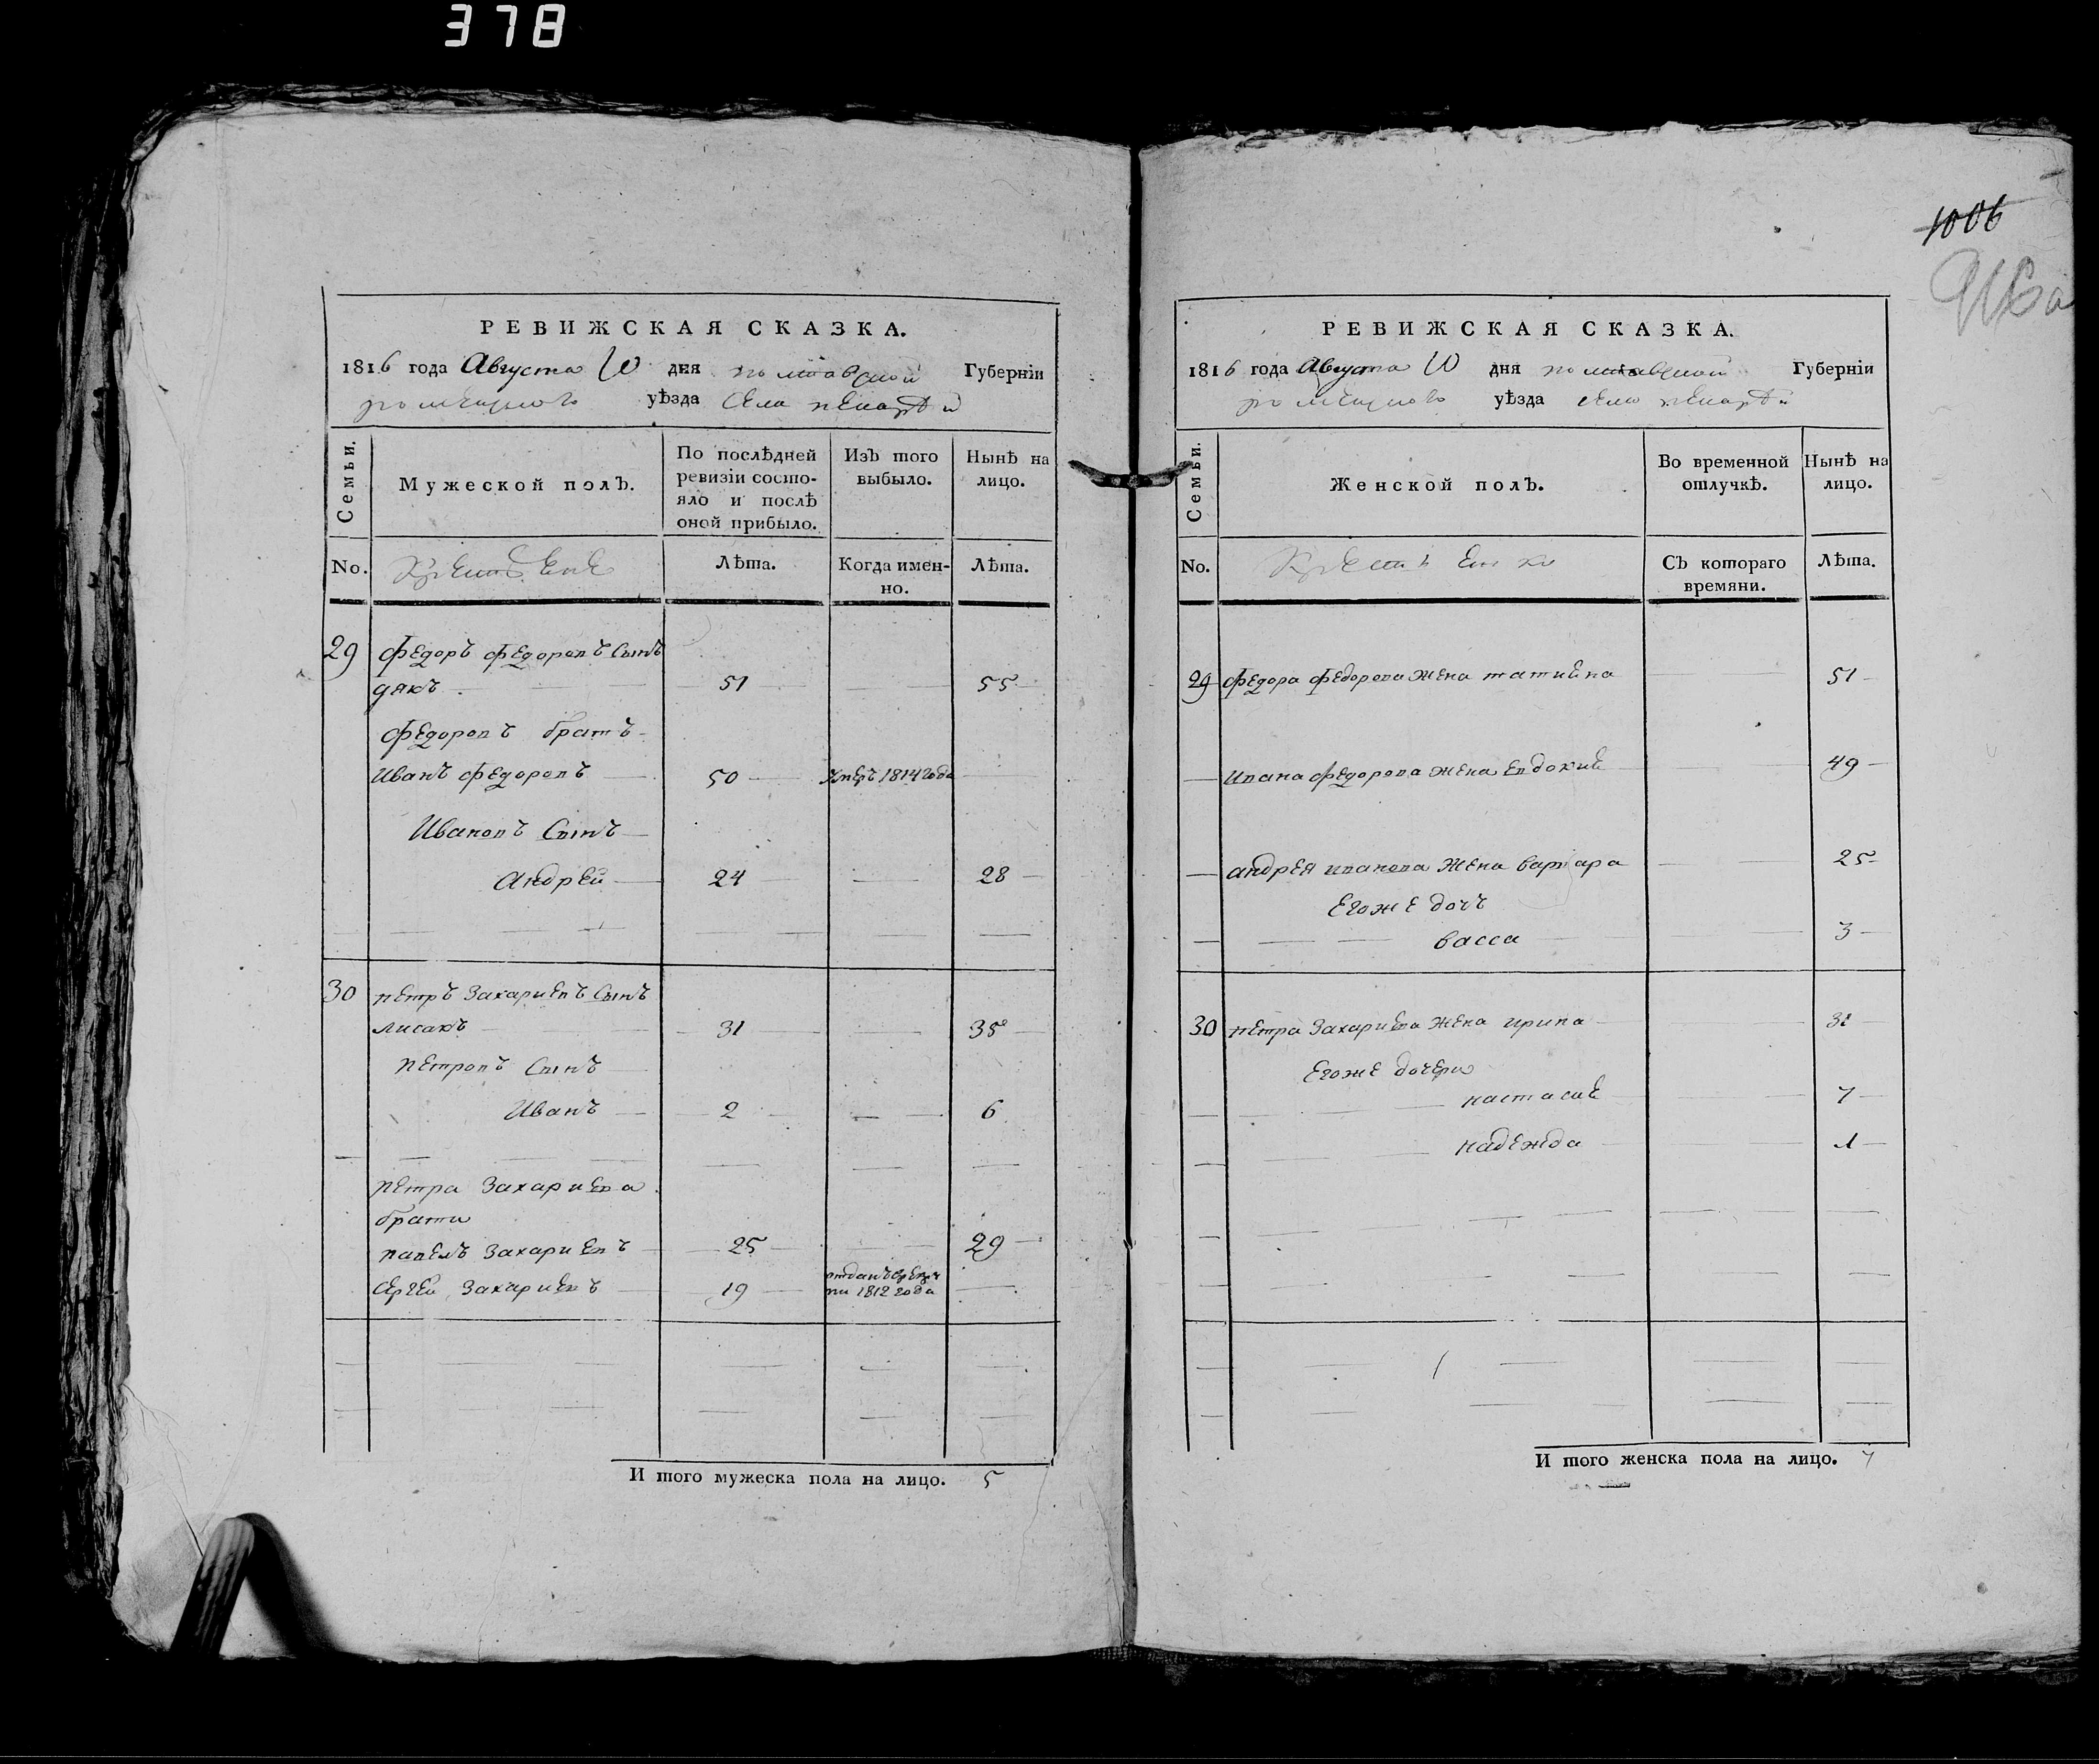 378
1006
РЕВИЖСКАЯ СКАЗКА.
1816 года Августа 10 дня полтавской Губерніи
роменского уѣзда села
Семьи.
Мужеской полъ.
По послѣдней ревизіи состо-
яло и послѣ
оной прибыло.
Изъ того
выбыло.
Нынѣ на
лицо.
No.
Лѣта.
Когда имен-
но.
Лѣта.
29 Федоръ Федоровъ Сынъ
дякъ 51 55
Федоровъ братъ
Иванъ Федоровъ 50 умеръ 1814 года
Ивановъ Сынъ
Андрей 24 28
30 петръ Захариевъ Сынъ
лисакъ 31 35
петровъ Сынъ
Иванъ 2 6
петра Захариева
брати
павелъ Захариевъ 25 29
Сергей Захариевъ 19 отданъ
1812 года
И того мужеска пола на лицо. 5
РЕВИЖСКАЯ СКАЗКА.
1816 года Августа 10 дня полтавской Губерніи
роменского уѣзда села
Семьи.
Женской полъ.
Во временной
отлучкѣ.
Нынѣ на
лицо.
No.
Съ котораго
времяни.
Лѣта.
29 Федора Федорова жена татиана 51
Ивана Федорова жена Евдокия 49
андрея иванова жена варвара 25
Егоже дочъ
васса 3
30 петра Захариева жена ирина 31
Егоже дочери
настасия 7
надежда 1
И того женска пола на лицо. 7